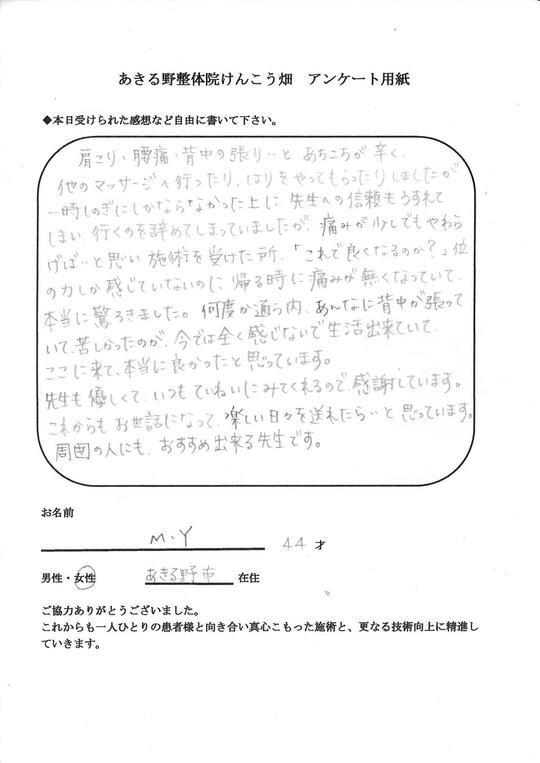 あきる野整体院けんこう畑　アンケート用紙
◆本日受けられた感想など自由に書いて下さい。
肩こり・腰痛・背中の張り…と あちこちが辛く、
他のマッサージへ行ったり、はりをやってもらったりしましたが
一時しのぎにしかならなかった上に、先生への信頼もうすれて
しまい、行くのを辞めてしまっていましたが、痛みが少しでもやわら
げば…と思い 施術を受けた所、「これで良くなるのか？」位
の力しか感じていないのに、帰る時に痛みが無くなっていて、
本当に驚ろきました。何度か通う内、あんなに背中が張って
いて、苦しかったのが、今では全く感じないで生活出来ていて、
ここに来て、本当に良かったと思っています。
先生も優しくて、いつもていねいにみてくれるので、感謝しています。
これからもお世話になって、楽しい日々を送れたら…と思っています。
周囲の人にも、おすすめ出来る先生です。
お名前
M.Y　44 才
男性・女性　あきる野市 在住
ご協力ありがとうございました。
これからも一人ひとりの患者様と向き合い真心こもった施術と、更なる技術向上に精進し
ていきます。